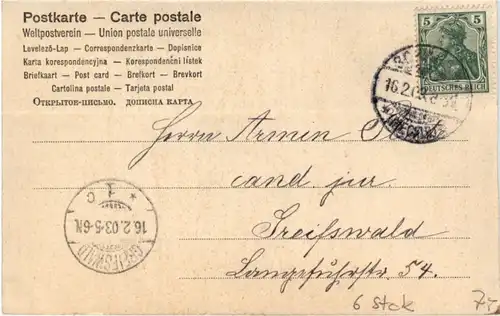 Postkarte — Carte postale
Weltpostverein — Union postale universelle
Levelező-Lap — Correspondenzkarte — Dopisnice
Karta korespondencyjna — Korespondenční lístek
Briefkaart — Post card — Brefkort — Brevkort
Cartolina postale — Tarjeta postal
Открытое-письмо. дописна карта
5 5
DEUTSCHES REICH
16.2.03
Herrn
cand. jur.
Greifswald
Langefuhrstr. 54.
* 1 c
16.2.03.5-6N.
GREIFSWALD
6 Stck 7,-